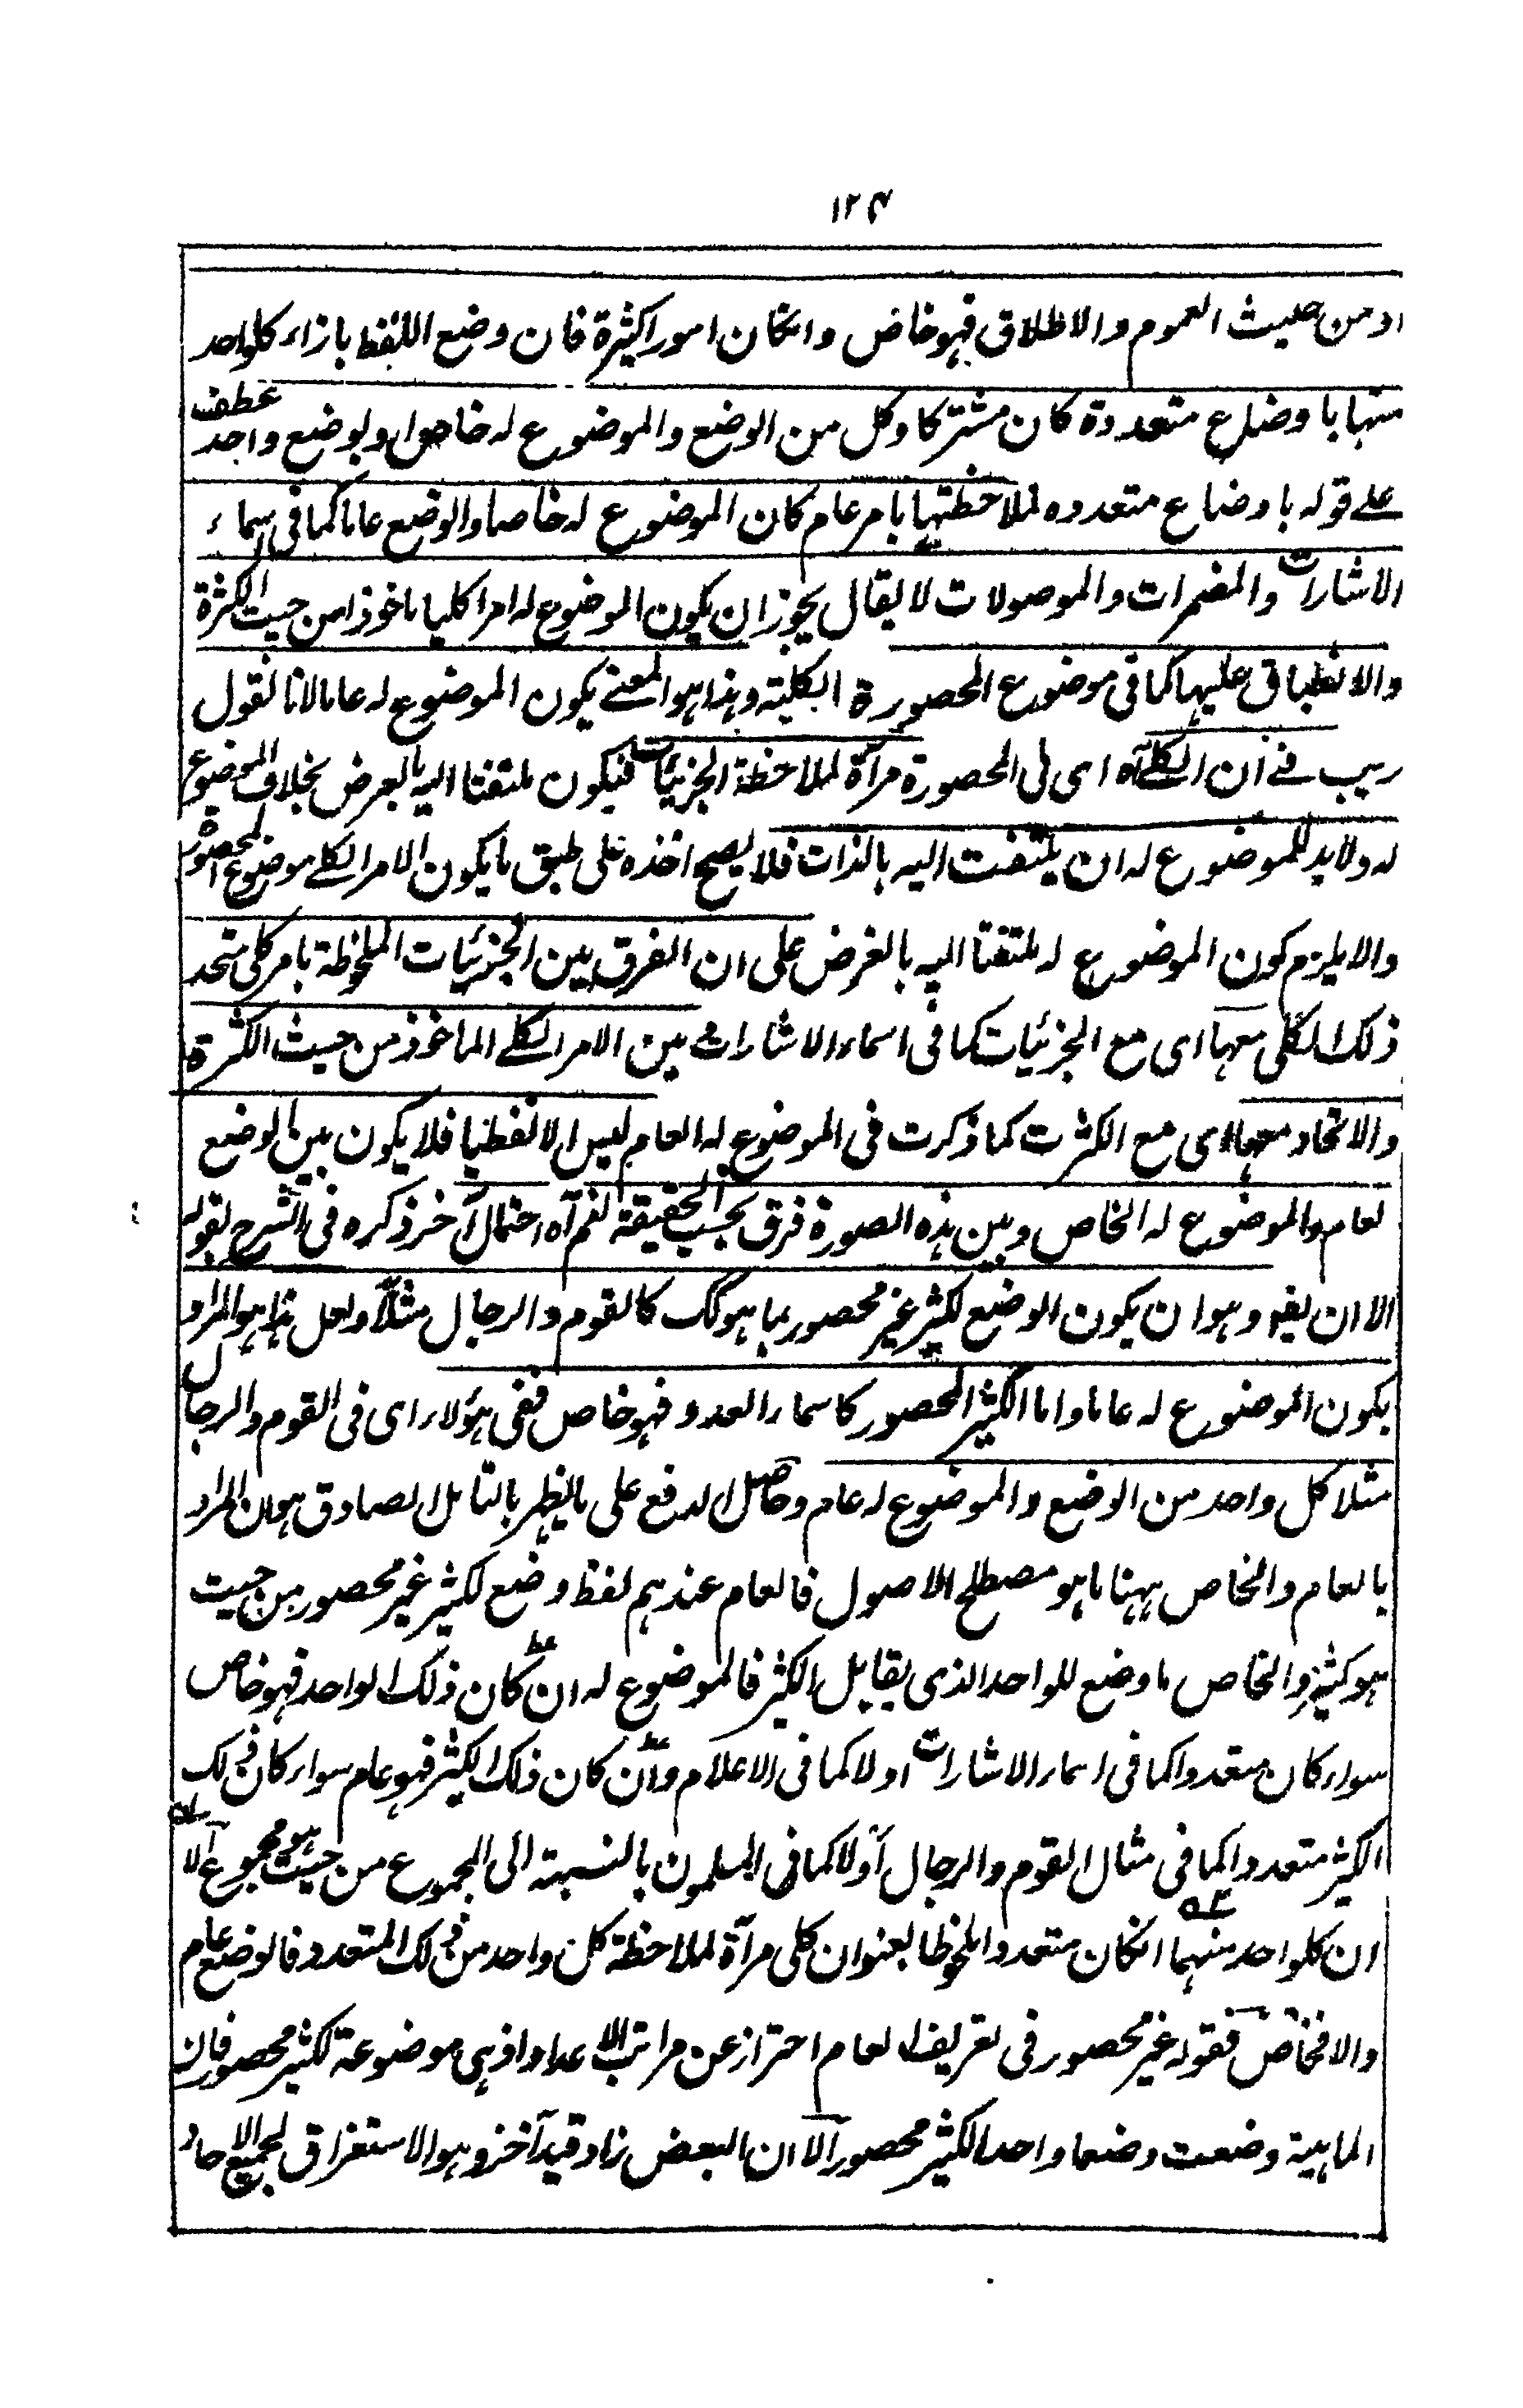 ١٢٤
او من حيث العموم والاطلاق فهو خاص وانكان امورا كثيرة فان وضع اللفظ بازاء كلواحد
منها باوضاع متعددة كان مشتركا وكل من الوضع والموضوع له خاصا او بوضع واحد عطف
على قوله باوضاع متعدده لملاحظتها بامر عام كان الموضوع له خاصا والوضع عاما كما في اسماء
الاشارات والمضمرات والموصولات لا يقال يجوز ان يكون الموضوع له امرا كليا ماخوذا من حيث الكثرة
والانطباق عليها كما في موضوع المحصورة الكلية وهذا هو المعنے يكون الموضوع له عاما لانا نقول
ريب في ان الكلے آه اى فى المحصورة مرآة لملاحظة الجزئيات فيكون ملتفتا اليه بالعرض بخلاف الموضوع
له ولا بد للموضوع له ان يلتفت اليه بالذات فلا يصح اخذه على طبق ما يكون الامر الكلے موضوع المحصورة
والا يلزم كون الموضوع له ملتفتا اليه بالغرض على ان الفرق بين الجزئيات الملحوظة بامر كلى متحد
ذلك الكلى معها اى مع الجزئيات كما فى اسماء الاشارات بين الامر الكلے الماخوذ من حيث الكثرة
والاتحاد معها اى مع الكثرت كما ذكرت فى الموضوع له العام ليس الا لفظيا فلا يكون بين الوضع
لعام والموضوع له الخاص وبين هذه الصورة فرق بحسب الحقيقة نعم آه احتمال آخر ذكره فى الشرح بقوله
الا ان يقو وهو ان يكون الوضع لكثير غير محصور بما هو كك كالقوم والرجال مثلا ولعل هذا هو المراد
بكون الموضوع له عاما واما الكثير المحصور كاسماء العدد فهو خاص ففى هؤلاء اى فى القوم والرجال
مثلا كل واحد من الوضع والموضوع له عام وحاصل الدفع على ما يظهر بالتامل الصادق هو ان المراد
بالعام والخاص ههنا ما هو مصطلح الاصول فالعام عندهم لفظ وضع لكثير غير محصور من حيث
هو كثير والخاص ما وضع للواحد الذى يقابل الكثير فالموضوع له ان كان ذلك الواحد فهو خاص
سواء كان متعددا كما فى اسماء الاشارات اولا كما فى الاعلام وان كان ذلك الكثير فهو عام سواء كان ذلك
الكثير متعددا كما فى مثال القوم والرجال أولا كما فى المسلمون بالنسبة الى المجموع من حيث هو مجموع الا
ان كلواحد منهما انكان متعددا ملحوظا بعنوان كلى مرآة لملاحظة كل واحد من ذلك المتعدد فالوضع عام
والا فخاص فقوله غير محصور فى تعريف العام احتراز عن مراتب الاعداد اذ هى موضوعة لكثير محصور فان
الماهية وضعت وضعا واحدا لكثير محصور الا ان البعض زاد قيدا آخر وهو الاستغراق لجميع الاحاد